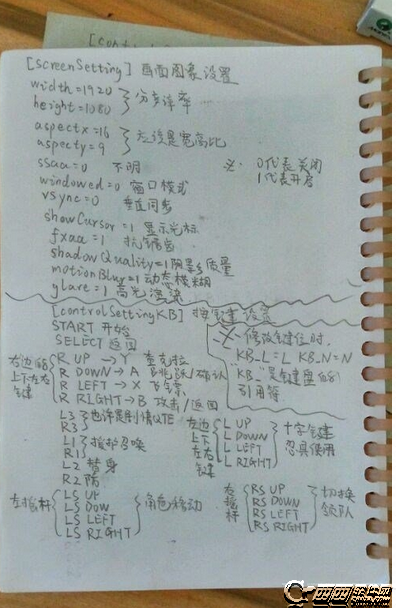 [screenSetting] 画面图象设置
width=1920
height=1080 } 分辨率
aspectx=16
aspecty=9 } 应该是宽高比
ssaa=0 不明
※: 0代表关闭
1代表开启
windowed=0 窗口模式
vsync=0 垂直同步
showCursor=1 显示光标
fxaa=1 抗锯齿
shadowQuality=1 阴影质量
motionBlur=1 动态模糊
glare=1 高光渲染
[controlSettingKB] 按键设置
START 开始
SELECT 返回
※ 修改键位时,
KB_L=L KB_N=N
"KB_"是键盘的
引用符
右边的
上下左右
键
R UP → Y 查克拉
R DOWN → A 跳跃/确认
R LEFT → X 飞镖
R RIGHT → B 攻击/返回
L3
R3 } 也许是剧情QTE
L1
R1 } 援护召唤
L2 替身
R2 防
左边
上下
左右
键
L UP
L DOWN
L LEFT
L RIGHT
十字键
忍具使用
左摇杆
LS UP
LS DOW
LS LEFT
LS RIGHT
角色移动
右
摇
杆
RS UP
RS DOWN
RS LEFT
RS RIGHT
切换
领队